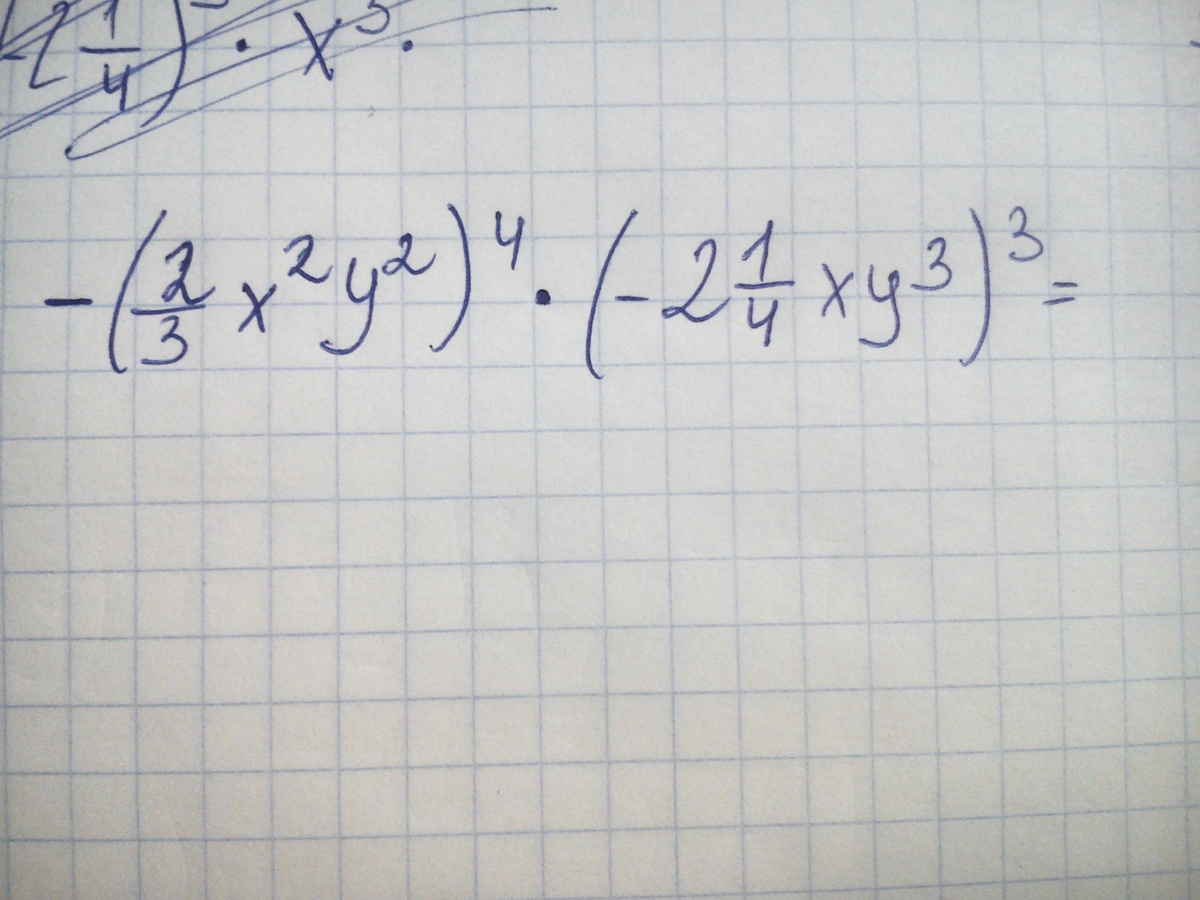 (2 1/4) · x³ ·
-(2/3 x²y²)⁴ · (-2 1/4 xy³)³ =